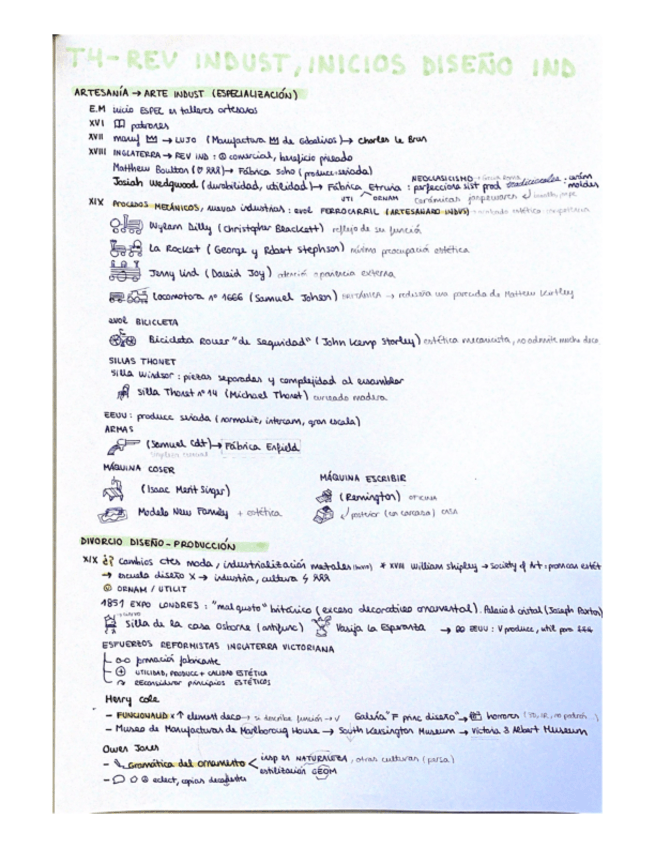 T4-REV INDUST, INICIOS DISEÑO IND
ARTESANÍA → ARTE INDUST (ESPECIALIZACIÓN)
E.M inicio ESPEC en talleres artesanos
XVI patrones
XVII manuf → LUJO (Manufactura de Gobelinos) → Charles le Brun
XVIII INGLATERRA → REV IND: comercial, beneficio privado
Matthew Boulton → Fábrica Soho (produce seriada)
NEOCLASICISMO
Josiah Wedgwood (durabilidad, utilidad) → Fábrica Etruria: perfecciona sist prod tradicionales
UTI ORNAM cerámicas jasperwares
moldes
XIX PROCESOS MECÁNICOS, nuevas industrias: evol FERROCARRIL (ARTESANADO INDUS)
Wylam Dilly (Christopher Blackett) reflejo de su función
La Rocket (George y Robert Stephson) mínima preocupación estética
Jenny Lind (David Joy) atenció apariencia externa
Locomotora nº 1666 (Samuel Johson) → rediseña una parecida de Mattew Kirtley
evol BICICLETA
Bicicleta Rover "de seguridad" (John Kemp Starley) estética mecanicista, no admite mucha deco
SILLAS THONET
Silla Windsor: piezas separadas y complejidad al ensamblar
Silla Thonet nº14 (Michael Thonet) curvado madera
EEUU: produce seriada (normaliz, intercam, gran escala)
ARMAS
(Samuel Colt) → Fábrica Enfield
MÁQUINA COSER
MÁQUINA ESCRIBIR
(Isaac Merit Singer)
(Remington) oficina
Modelo New Family + estética
posterior (con carcasa) casa
DIVORCIO DISEÑO-PRODUCCIÓN
XIX cambios ctes moda, industrialización metales * XVIII William Shipley → Society of Art: promocan estét
→ escuela diseño X → industria, cultura
ORNAM / UTILIT
1851 EXPO LONDRES: "mal gusto" británico (exceso decorativo ornamental). Palacio d cristal (Joseph Paxton)
Silla de la casa Osborne (antifunc) Vasija La Esperanza → EEUU: V produce, util para
ESFUERZOS REFORMISTAS INGLATERRA VICTORIANA
formación fabricante
UTILIDAD, PRODUCE + CALIDAD ESTÉTICA
REconsiderar principios ESTÉTICOS
Henry Cole
- FUNCIONALID x ↑ element deco → si describe función → √ Galería "F princ diseño" → horrores
- Museo de Manufacturas de Marlboroug House → South Kensington Museum → Victoria & Albert Museum
Owen Jones
- Gramática del ornamento < insp en NATURALEZA, otras culturas (persa)
estilización GEOM
- eclect, copias decadentes